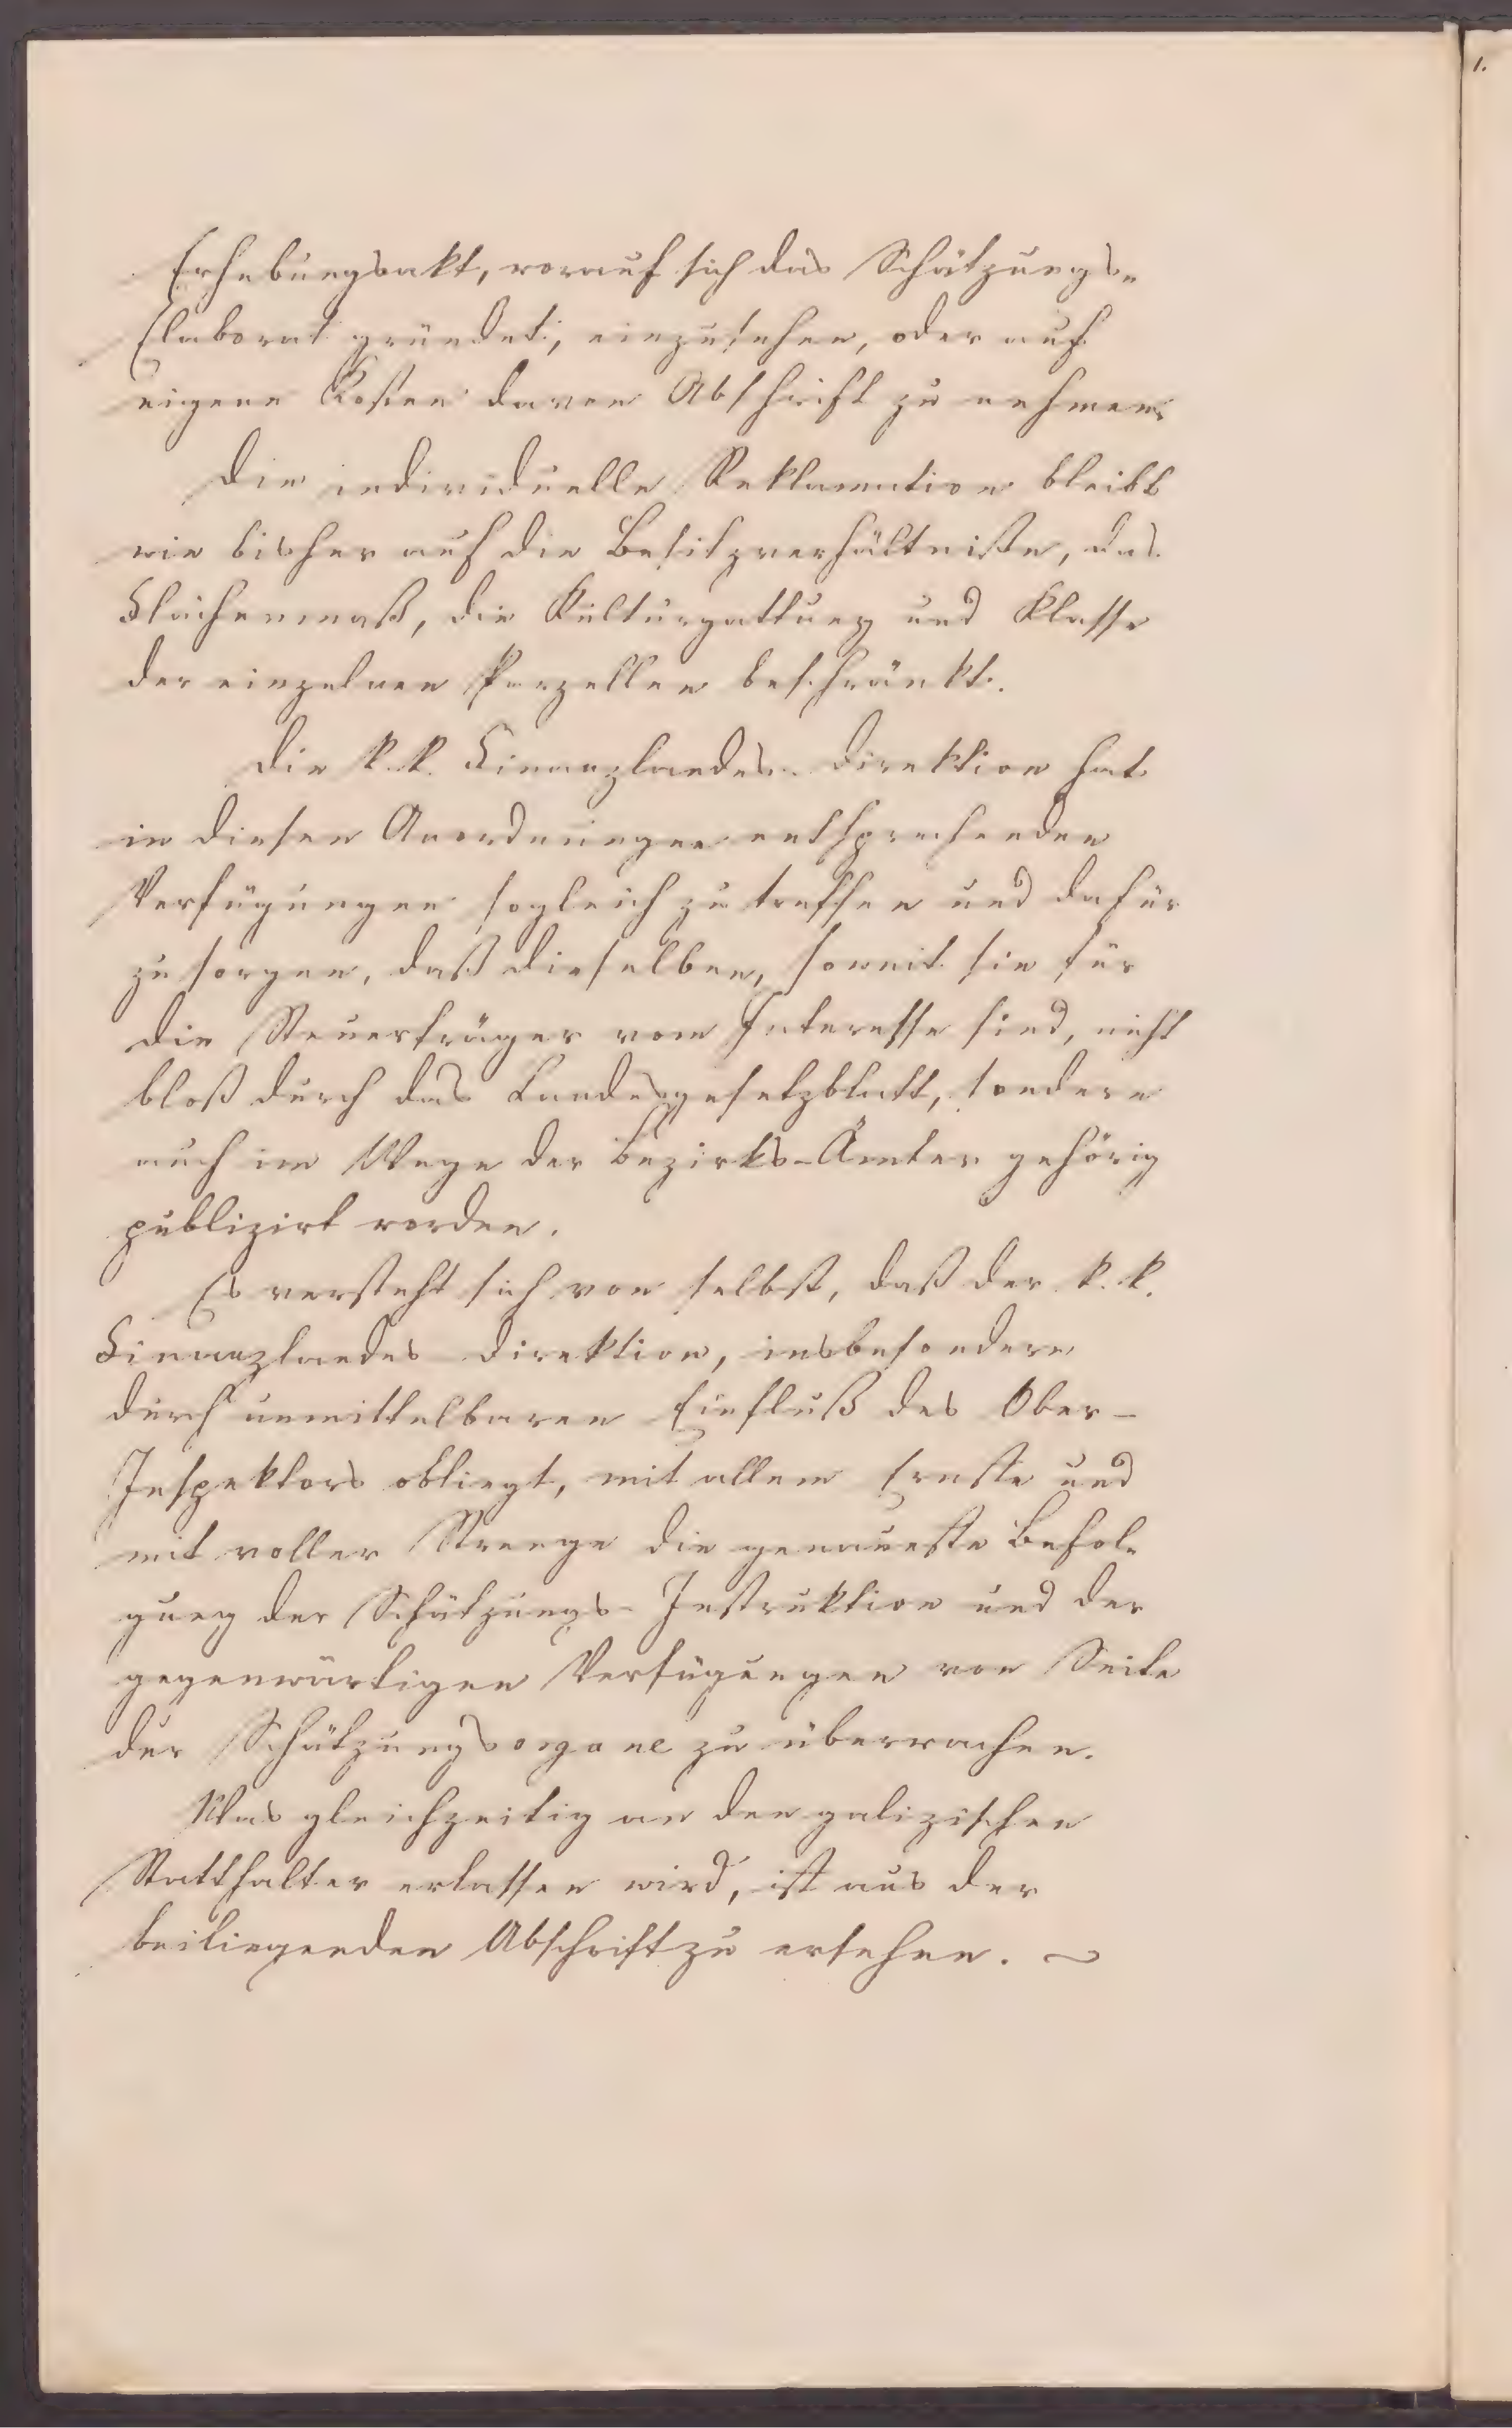 1.
Erhebungsakt, worauf sich das Schätzungs-
Elaborat gründet, einzusehen, oder auf
eigene Kosten davon Abschrift zu nehmen.
Die individuelle Reklamation bleibt
wie bisher auf die Besitzverhältniße, das
Flächenmaß, die Kulturgattung und Klasse
der einzelnen Parzellen beschränkt.
Die k. k. Finanzlandes-Direktion hat
in diesen Anordnungen entsprechenden
Verfügungen sogleich zu treffen und dafür
zu sorgen, daß dieselben, soweit sie für
die Steuerträger vom Interesse sind, nicht
bloß durch das Landesgesetzblatt, sondern
auch im Wege der Bezirks-Ämter gehörig
publizirt werden.
Es versteht sich von selbst, daß der k. k.
Finanzlandes Direktion, insbesondere
durch unmittelbaren Einfluß des Ober-
Inspektors obliegt, mit allem Ernste und
mit voller Strenge die genaueste Befol-
gung der Schätzungs-Instruktion und der
gegenwärtigen Verfügungen von Seite
der Schätzungsorgane zu überwachen.
Was gleichzeitig an den galizischen
Statthalter erlassen wird, ist aus der
beiliegenden Abschrift zu ersehen.